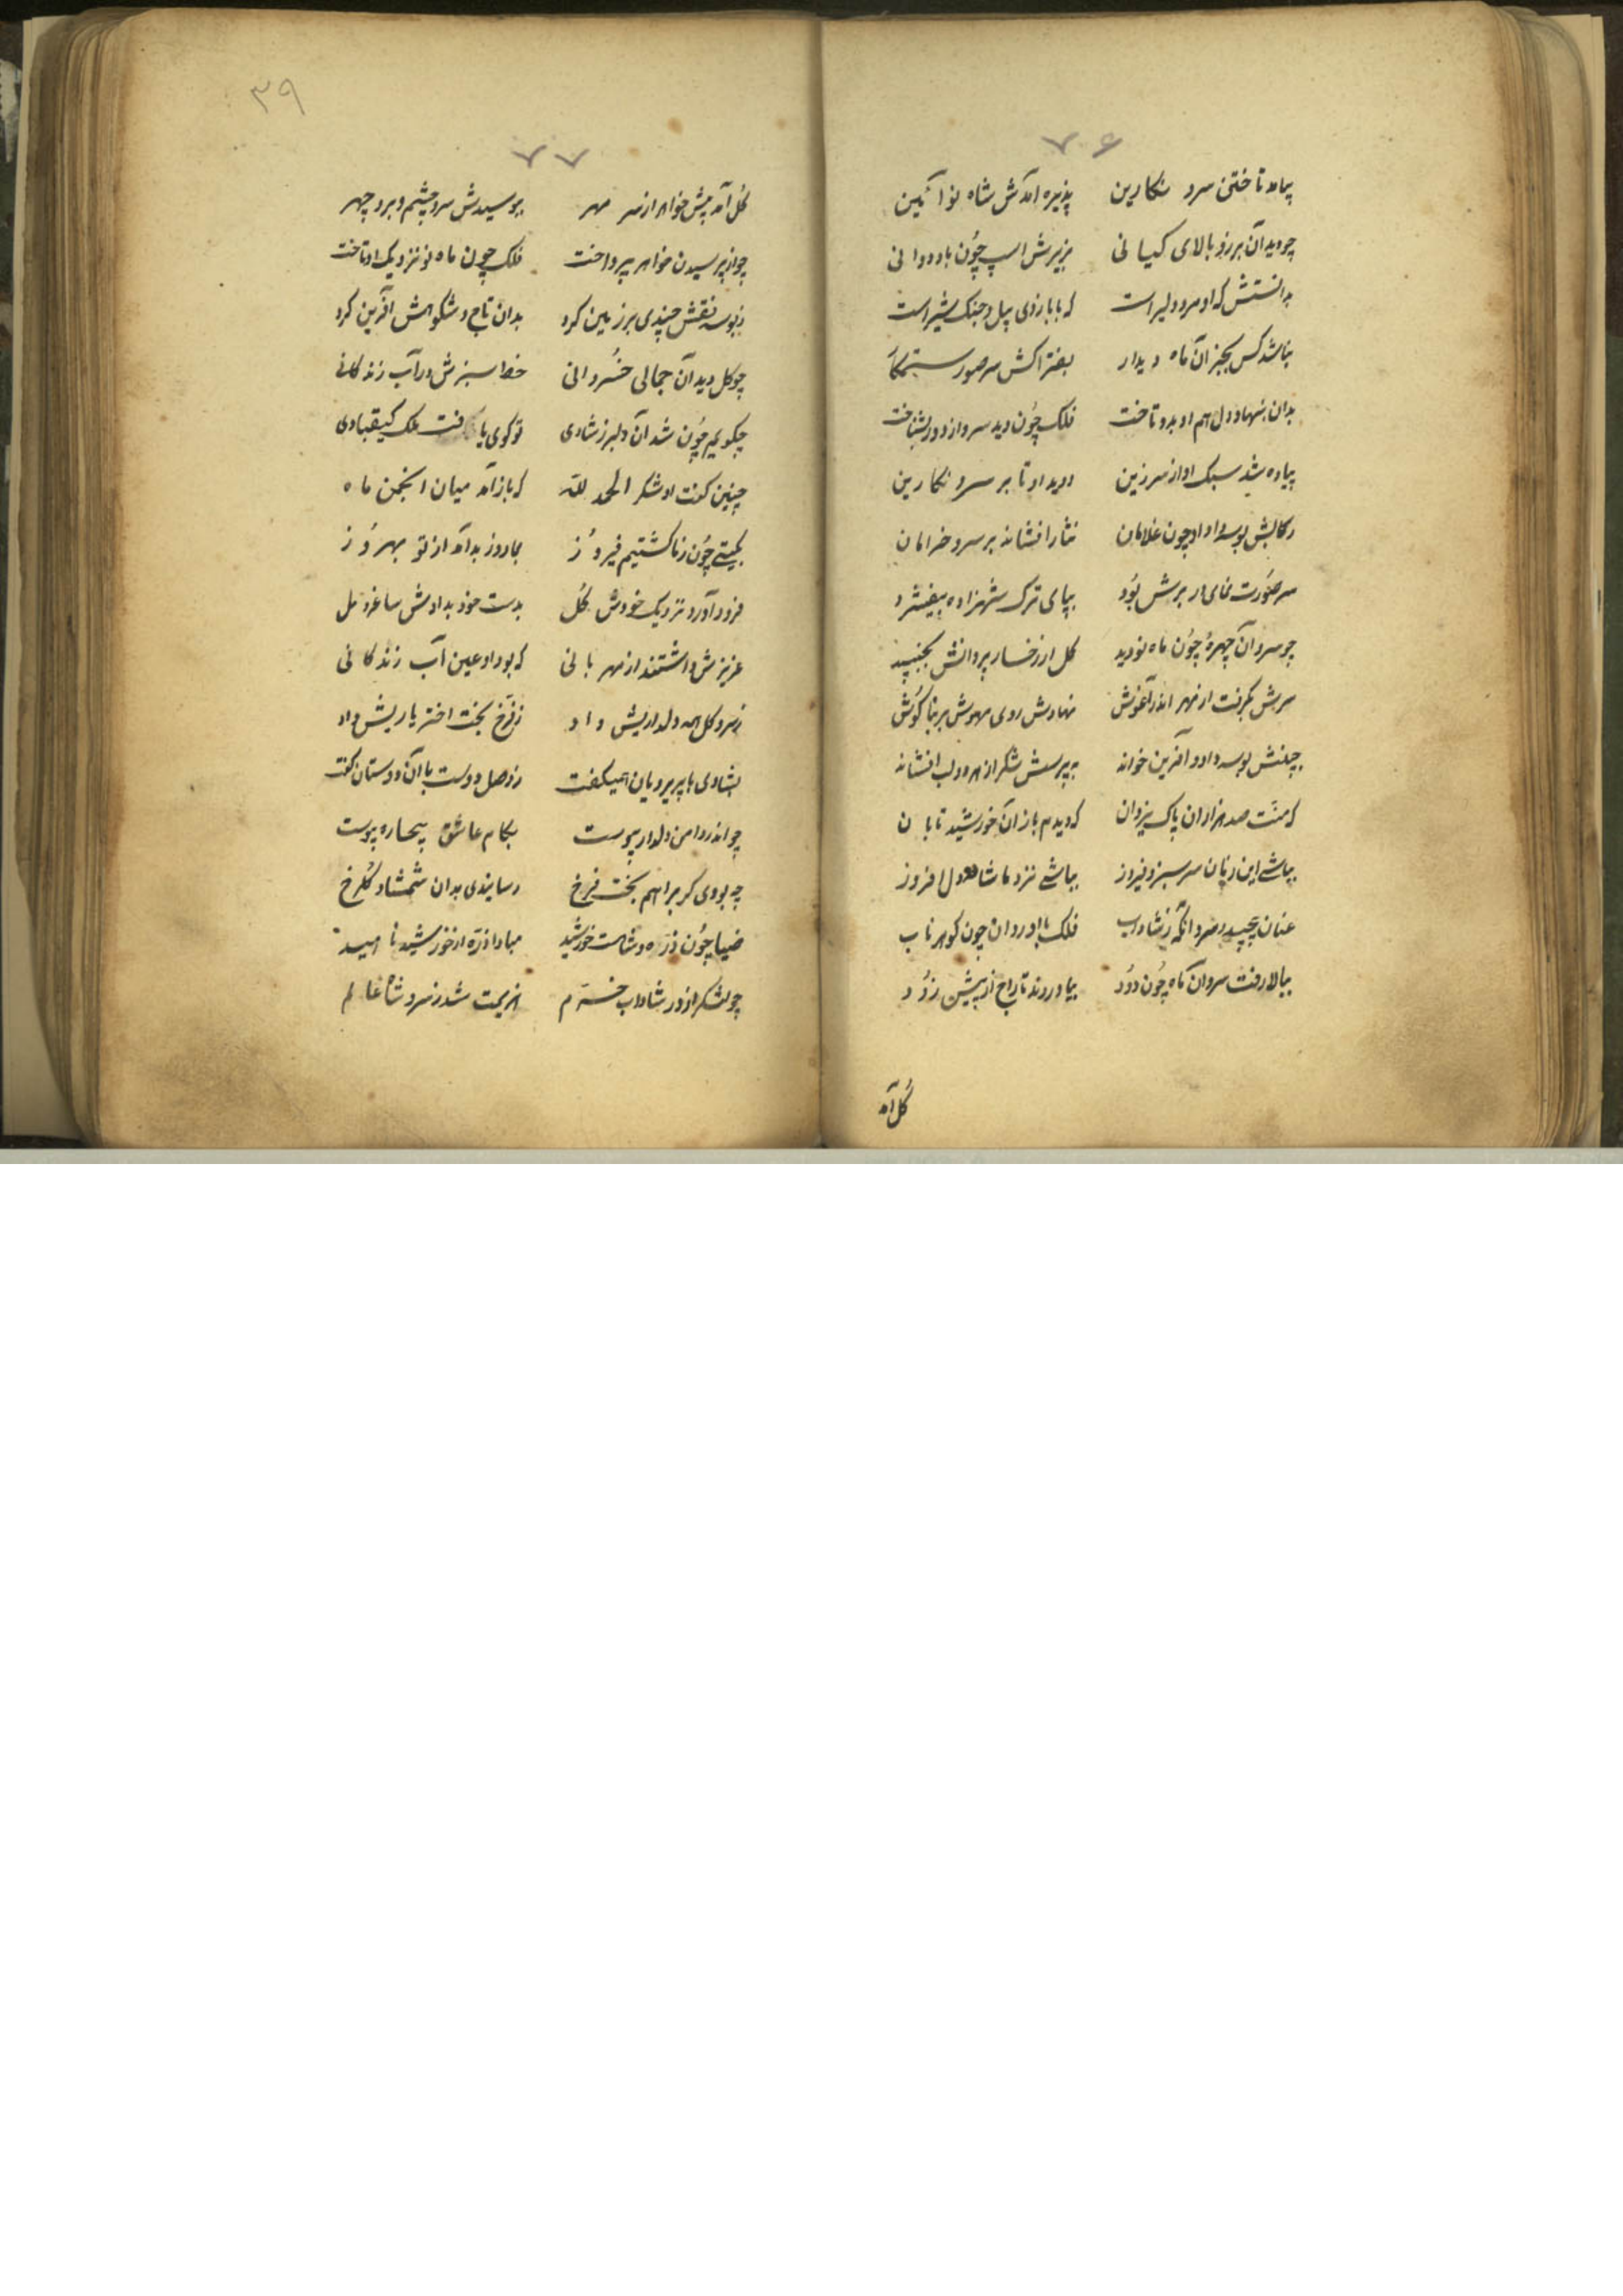 ۷۶
بیامد تاختن سرو نگارین پذیره آمدش شاه نو آئین
چو دید آن برز و بالای کیانی بزیرش اسپ چون باد دوانی
بدانستش که او مرد دلیر است که با بازوی پیل و جنک شیر است
نباشد کس بجز آن ماه دیدار بفتراکش سر صور ستمکار
بدان بنهاد دل هم او بدو تاخت فلک چون دید سرو از دور بشناخت
پیاده شد سبک او از سر زین دوید او تا بر سرو نکارین
رکابش بوسه داد او چون غلامان نثار افشاند بر سرو خرامان
سر صورت نمای ار برش بود بپای ترک شهزاده بیفشرد
چو سرو آن چهرهٔ چون ماه نو دید کل از رخسار پروانش بخنبید
سرش بکرفت از مهر اندر آغوش نهادش روی مهوش بر بناکوش
بچنش بوسه داد و آفرین خواند به پرسش شکر از هر دو لب افشاند
که منت صد هزاران پاک یزدان که دیدم باز آن خورشید تابان
بباشی این زمان سرسبز و فیروز بباشی نزد ما شاه دل افروز
عنان پیچید سرو آنکه ز شاداب فلک با او روان چون کوهر ناب
ببالا رفت سرو آن کاه چون دود بیاوردند تاراج از پیش زود
کل آمد
۳۹
۷۷
کل آمد پیش خواهر از سر مهر ببوسیدش سر و چشم و بر و چهر
چو از پرسیدن خواهر بپرداخت فلک چون ماه نو نزدیک او تاخت
ز بوسه نقش چندی بر زمین کرد بدان تاج و شکوهش آفرین کرد
چو کل دید آن جمالی خسروانی خط سبزش در آب زندکانی
چکویم چون شد آن دلبر ز شادی تو کوی یافت ملک کیقبادی
چنین کفت او شکر الحمد لله که باز آمد میان انجمن ماه
بکیتی چون ز ما کشتیم فیروز بما روز بد آمد از تو بهروز
فرود آورد نزدیک خودش کل بدست خود بدادش ساغر و مل
عزیزش داشتند از مهربانی که بود او عین آب زندکانی
ز سرو کل همه دلداریش داد ز فرخ بخت اختر یاریش داد
بشادی با پریرویان همیکفت ز وصل دوست با آن دوستان کفت
چو اندر دامن دلدار پیوست بکام عاشق بیچاره پیوست
چه بودی کر مرا هم بخت فرخ رسایندی بدان شمشاد کلرخ
ضیا چون ذره و شاهست خورشید مبادا ذره از خورشید نا امید
چو لشکر از در شاداب خرم هزیمت شد ز سرو شاه عالم